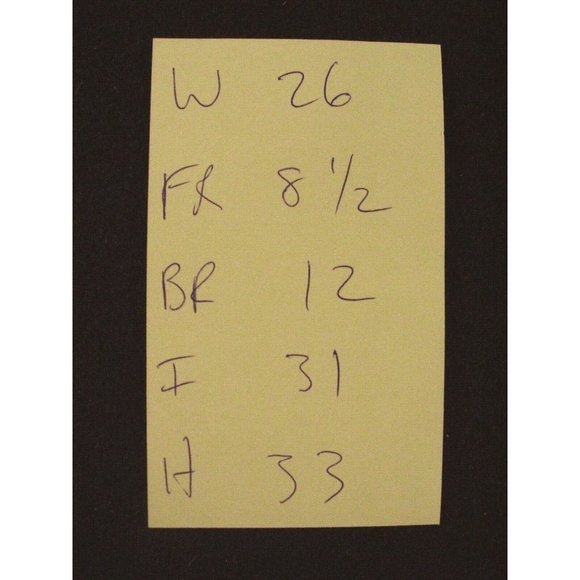 W 26
FR 8 1/2
BR 12
I 31
H 33